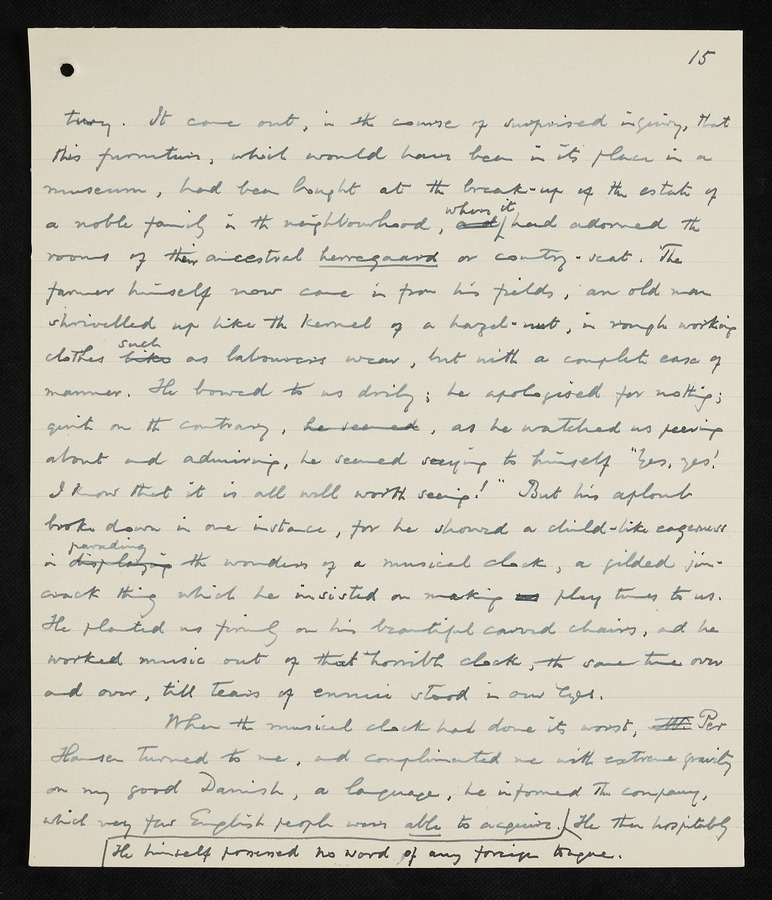 15
tury. It came out, in the course of surprised inquiry, that
this furniture, which would have been in its place in a
museum, had been bought at the break-up of the estate of
where it
a noble family in the neighbourhood, and had adorned the
rooms of their ancestral herregaard or country-seat. The
farmer himself now came in from his fields, an old man
shrivelled up like the kernel of a hazel-nut, in rough working
such
clothes like as labourers wear, but with a complete ease of
manner. He bowed to us drily; he apologised for nothing;
quite on the contrary, he seemed, as he watched us peering
about and admiring, he seemed saying to himself "Yes, yes!
I know that it is all well worth seeing!" But his aplomb
broke down in one instance, for he showed a child-like eagerness
parading
in displaying the wonders of a musical clock, a gilded jim-
crack thing which he insisted on making play tunes to us.
He planted us firmly on his beautiful carved chairs, and he
worked music out of that horrible clock, the same tune over
and over, till tears of ennui stood in our eyes.
When the musical clock had done its worst, Per
Hansen turned to me, and complimented me with extreme gravity
on my good Danish, a language, he informed the company,
which very few English people were able to acquire. He then hospitably
He himself possessed no word of any foreign tongue.